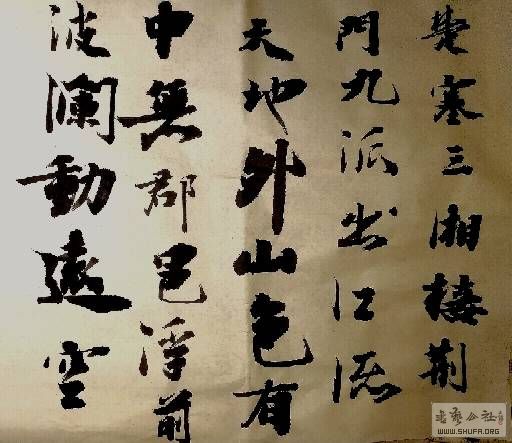 楚塞三湘接荆
門九派出江流
天地外山色有
中無郡邑浮前
波瀾動遠空
书艺公社
WWW.SHUFA.ORG